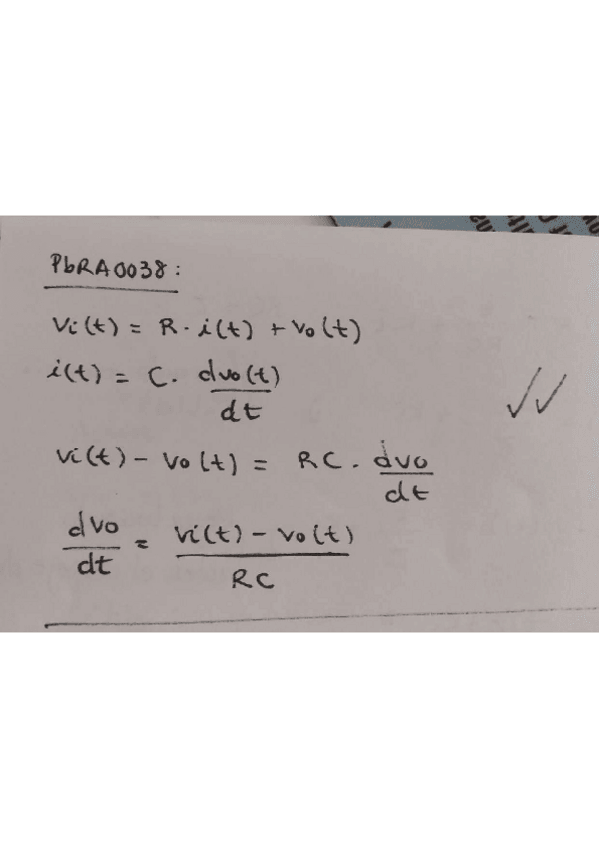 PbRA0038:
Vi(t) = R. i(t) + Vo(t)
i(t) = C. dvo(t)/dt
Vi(t) - Vo(t) = RC. dvo/dt
dvo/dt = Vi(t) - Vo(t)/RC